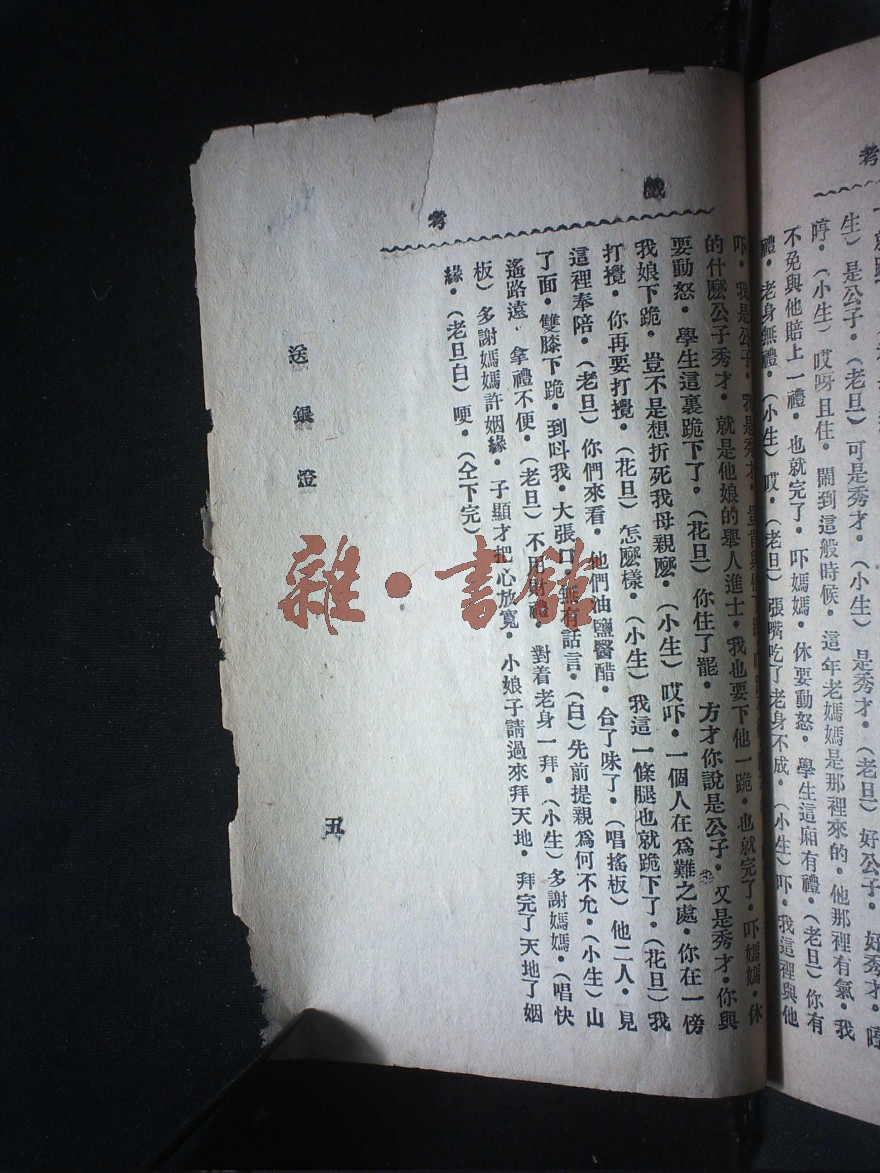 考
生）是公子・（老旦）可是秀才・（小生）是秀才・（老旦）好公子・好秀才・哼
哼・（小生）哎呀且住・鬧到這般時候・這年老媽媽是那裡來的・他那裡有氣・我
不免與他賠上一禮・也就完了・吓媽媽・休要動怒・學生這廂有禮・（老旦）你有
禮・老身無禮・（小生）哎・（老旦）張嘴吃了老身不成・（小生）吓・我這裡與他
吓・我是公子・我是秀才・豈肯與他下跪
的什麼公子秀才・就是他娘的舉人進士・我也要下他一跪・也就完了・吓媽媽・休
要動怒・學生這裏跪下了・（花旦）你住了罷・方才你説是公子・又是秀才・你與
我娘下跪・豈不是想折死我母親麼・（小生）哎吓・一個人在爲難之處・你在一傍
打攪・你再要打攪・（花旦）怎麼樣・（小生）我這一條腿也就跪下了・（花旦）我
這裡奉陪・（老旦）你們來看・他們油鹽醫醋・合了味了・（唱搖板）他二人・見
了面・雙膝下跪・到呌我・大張口・無有話言・（白）先前提親爲何不允・（小生）山
遙路遠・拿禮不便・（老旦）不用財禮・對着老身一拜・（小生）多謝媽媽・（唱快
板）多謝媽媽許姻緣・子顯才把心放寬・小娘子請過來拜天地・拜完了天地了姻
緣・（老旦白）哽・（仝下完）
戲考
送銀澄
五
雜・書館